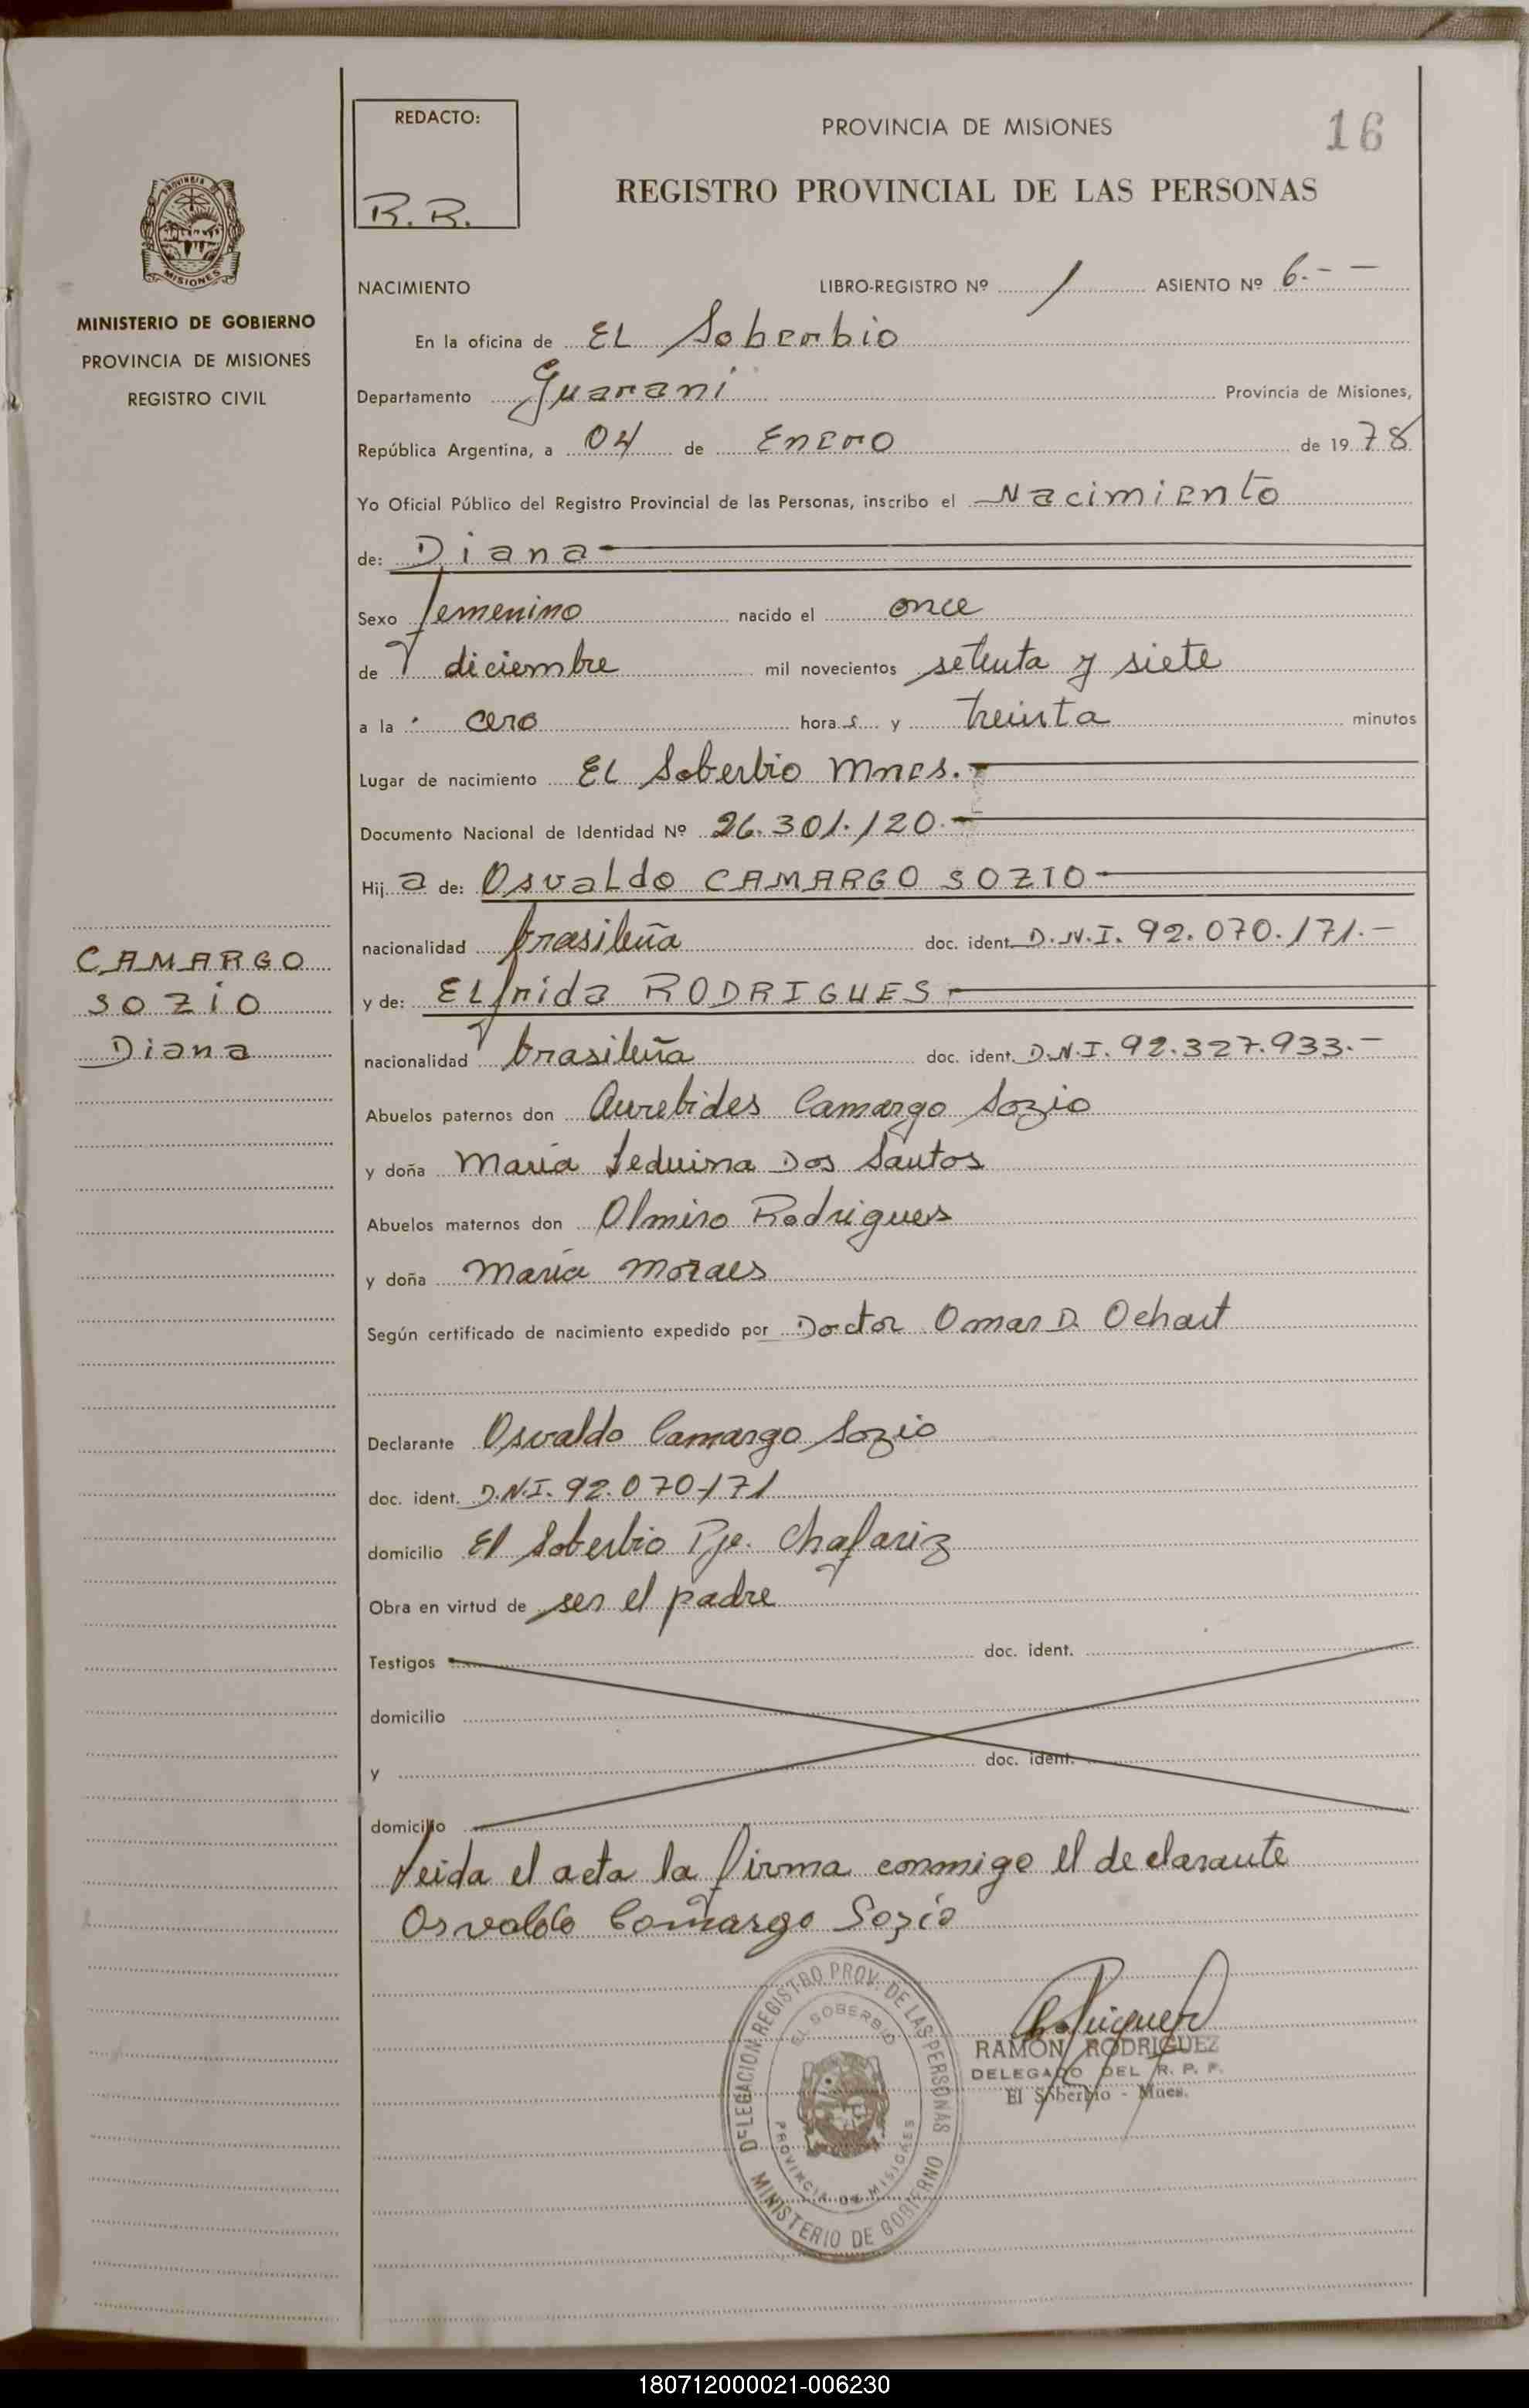 REDACTO:
R.R.
PROVINCIA DE MISIONES
16
REGISTRO PROVINCIAL DE LAS PERSONAS
PROVINCIA DE
MISIONES
MINISTERIO DE GOBIERNO
PROVINCIA DE MISIONES
REGISTRO CIVIL
NACIMIENTO LIBRO-REGISTRO Nº 1 ASIENTO Nº 6.- -
En la oficina de EL Soberbio
Departamento Guarani Provincia de Misiones,
República Argentina, a 04 de Enero de 1978
Yo Oficial Público del Registro Provincial de las Personas, inscribo el Nacimiento
de: Diana
Sexo femenino nacido el once
de diciembre mil novecientos setenta y siete
a la cero hora s y treinta minutos
Lugar de nacimiento EL Soberbio Mnes.
Documento Nacional de Identidad Nº 26.301.120.
Hij a de: Osvaldo CAMARGO SOZIO
nacionalidad brasileña doc. ident. D.N.I. 92.070.171.-
CAMARGO
SOZIO
Diana
y de: Elfrida RODRIGUES
nacionalidad brasileña doc. ident. D.N.I. 92.327.933.-
Abuelos paternos don Aurebides Camargo Sozio
y doña Maria Seduina Dos Santos
Abuelos maternos don Olmiro Rodrigues
y doña Maria Moraes
Según certificado de nacimiento expedido por Doctor Omar D. Ochart
Declarante Osvaldo Camargo Sozio
doc. ident. D.N.I. 92.070.171
domicilio El Soberbio Pje. Chafariz
Obra en virtud de ser el padre
Testigos doc. ident.
domicilio
y doc. ident.
domicilio
Leida el acta la firma conmigo el declarante
Osvaldo Camargo Sozio
DELEGACION REGISTRO PROV. DE LAS PERSONAS
EL SOBERBIO
PROVINCIA DE MISIONES
MINISTERIO DE GOBIERNO
RAMON RODRIGUEZ
DELEGADO DEL R. P. P.
El Soberbio - Mnes.
180712000021-006230